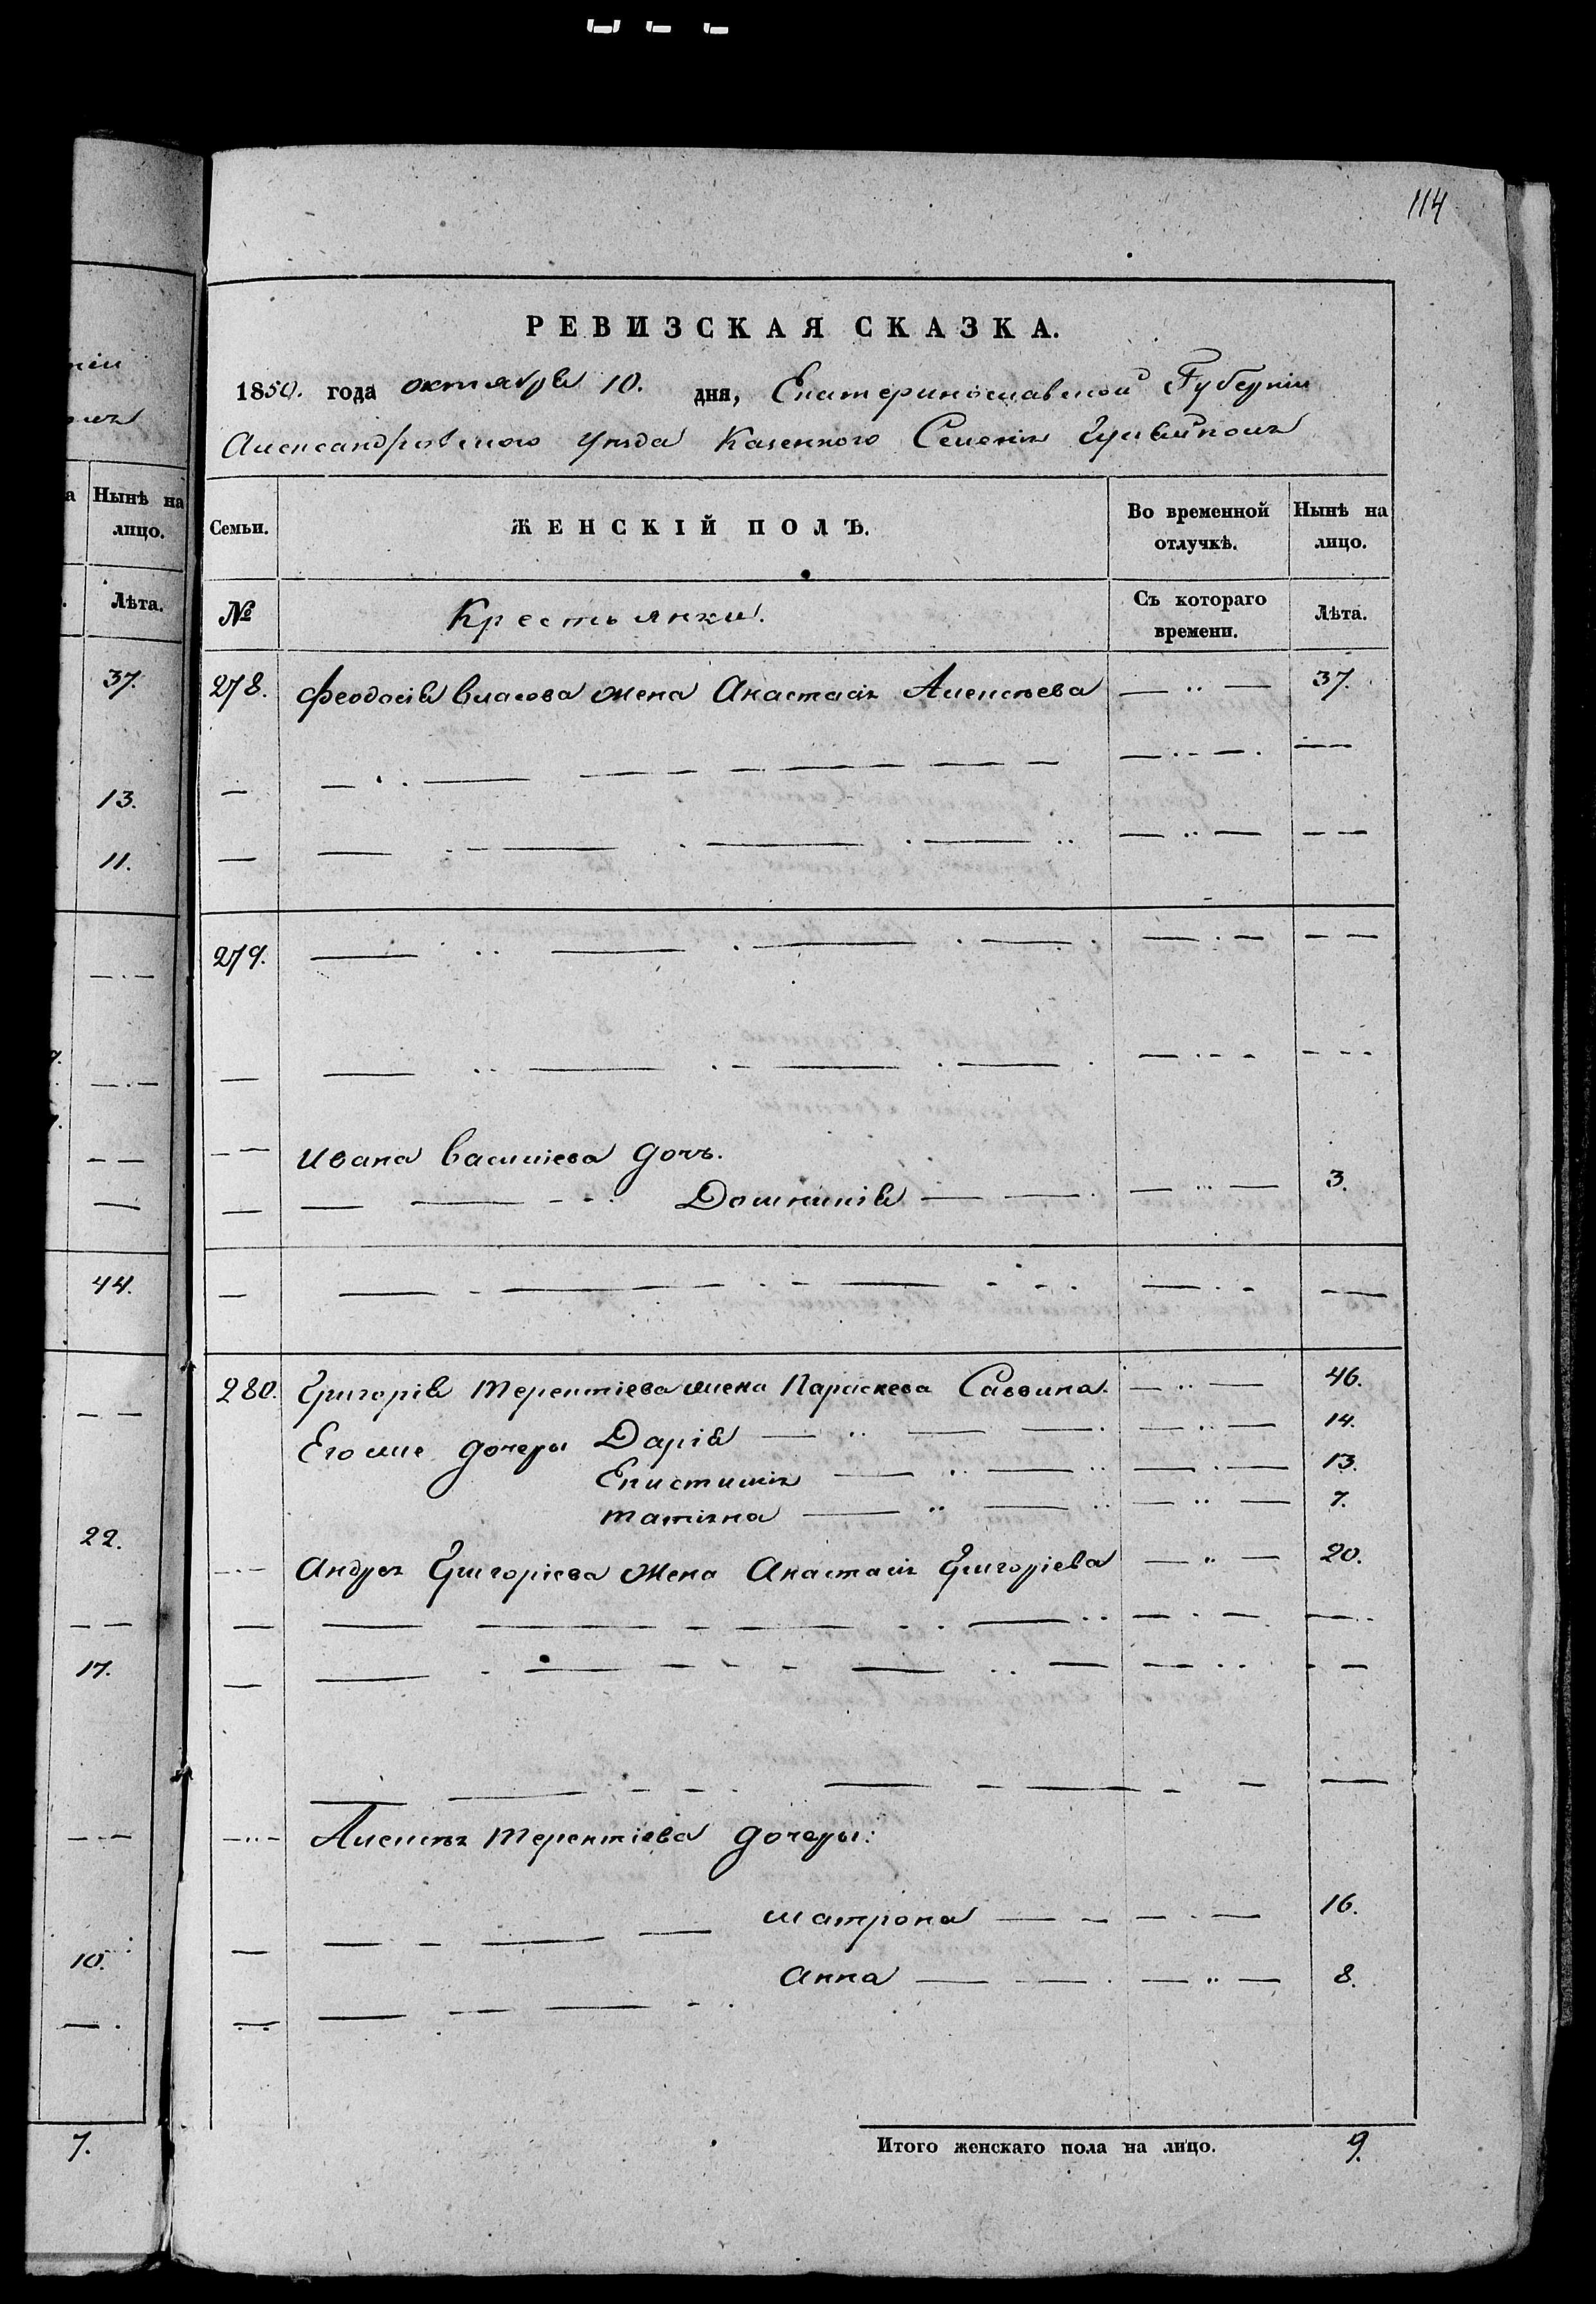 114
РЕВИЗСКАЯ СКАЗКА.
1850. года октября 10. дня, Екатеринославской Губерніи
Александровского Уезда Казенного Селенія Гуляйполя
Семьи. ЖЕНСКІЙ ПОЛЪ. Во временной отлучкѣ. Нынѣ на лицо.
№ Крестьянки. Съ котораго времени. Лѣта.
278. Феодосія власова жена Анастасія Алексѣева — " — 37.
279.
Ивана василіева дочь.
Домникія 3.
280. Григорія терентіева жена Параскева Саввина. — " — 46.
Его же дочеры Дарія 14.
Епистимія 13.
татіяна 7.
Андрея Григоріева жена Анастасія Григоріева — " — 20.
Алексѣя терентіева дочеры:
матрона 16.
Анна 8.
Итого женскаго пола на лицо. 9.
Нынѣ на
лицо.
Лѣта.
37.
13.
11.
44.
22.
17.
10.
7.